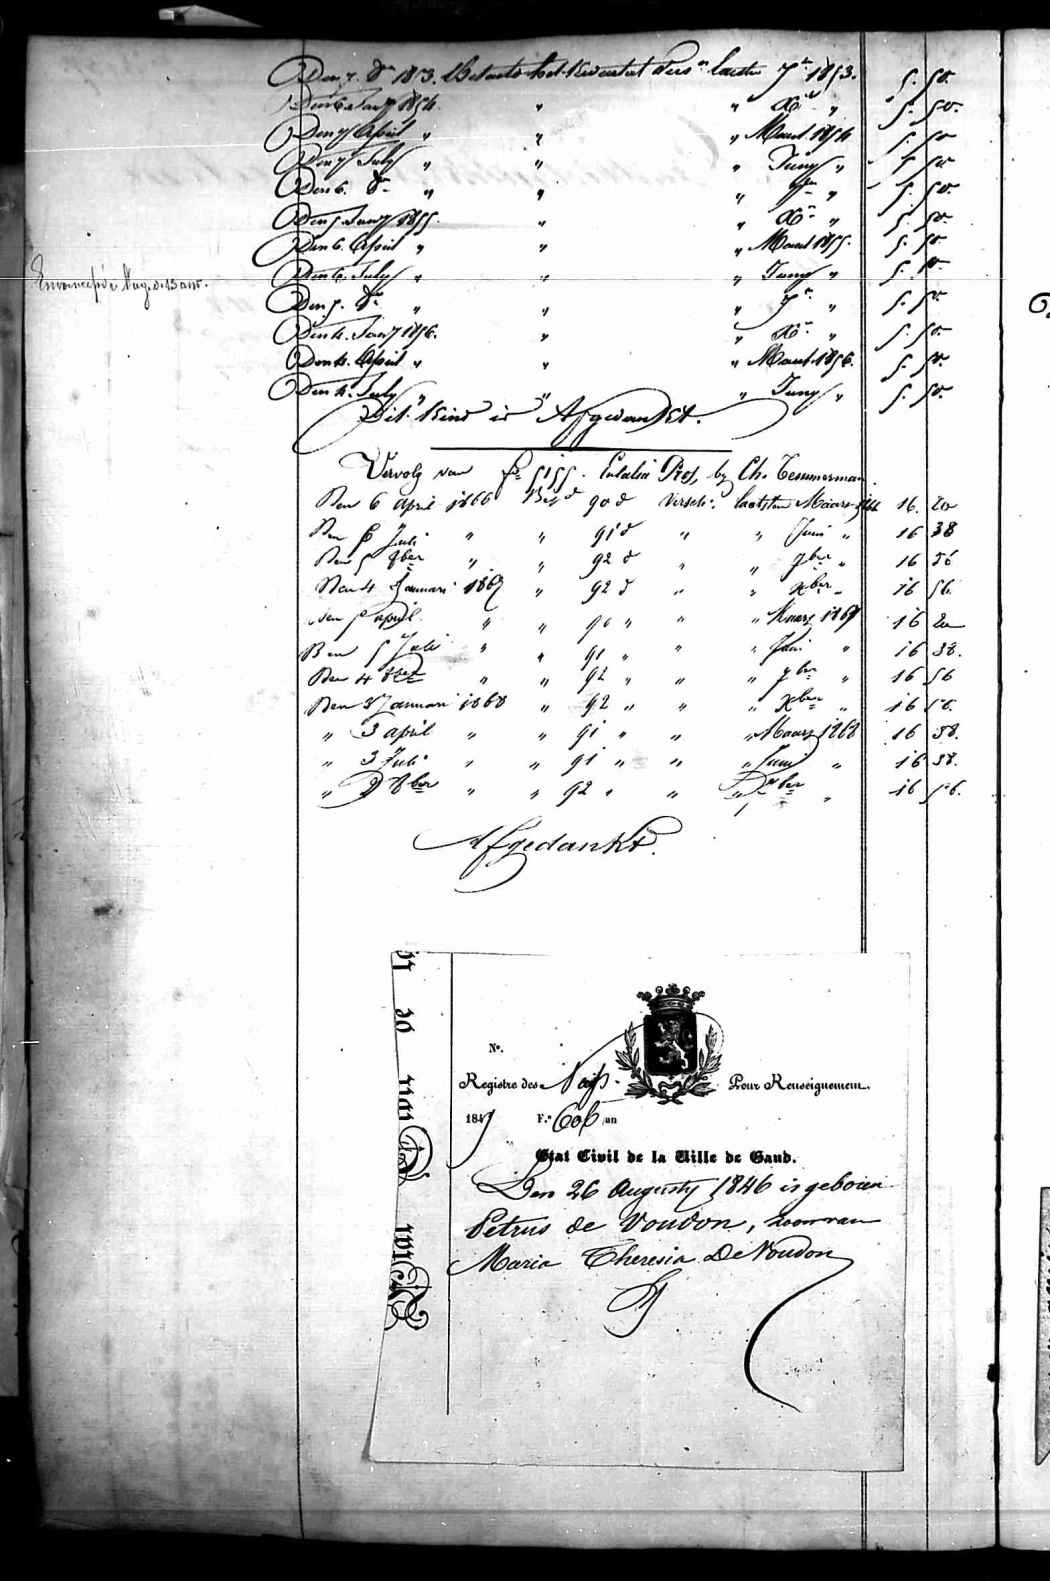 Den 7. 8r 1853. Betaelt het kwartael vers.n laetste 7r 1853. 5. 50.
Den 6 Jany 1854 " " Xr " 5. 50.
Den 7 April " " " Maert 1854 5. 50
Den 7 July " " " Juny " 5 50
Den 6. 8r " " " 7r " 5. 50.
Den 5 Jany 1855. " " Xr " 5. 50.
Den 6. April " " " Maert 1855. 5. 50
Den 6. July " " " Juny " 5. 50.
Den 5. 8r " " 7r " 5. 50
Den 4. Jany 1856. " " Xr " 5. 50.
Den 4. April " " " Maert 1856. 5. 50.
Den 4. July " " " Juny " 5. 50.
Dit Kind is Afgedankt.
Vervolg van fo 5155. Eulalia Pros, by Ch. Temmerman
Den 6 april 1866 90 d versch. laatsten Maars 1866 16. 20
Den 6 Juli " " 91 d " " Juni " 16 38
Den 5 8ber " " 92 d " " 7ber " 16 56
Den 4 Januari 1867 " 92 d " " xber " 16 56.
Den 5 april " " 90 " " " Maars 1867 16 20
Den 5 Juli " " 91 " " " Juni " 16 38.
Den 4 8ber " " 92 " " " 7ber " 16 56
Den 3 Januari 1868 " 92 " " " xber " 16 56.
" 3 april " " 91 " " " Maars 1868 16 38.
" 3 Juli " " 91 " " " Juni " 16 38.
" 2 8ber " " 92 " " " 7ber " 16 56.
Afgedankt.
No.
Registre des Naiss. Pour Renseignement.
1847 F.o 606 un
Etat Civil de la Ville de Gand.
Den 26 Augusty 1846 is geboren
Petrus de Voudon, zoon van
Maria Theresia De Voudon